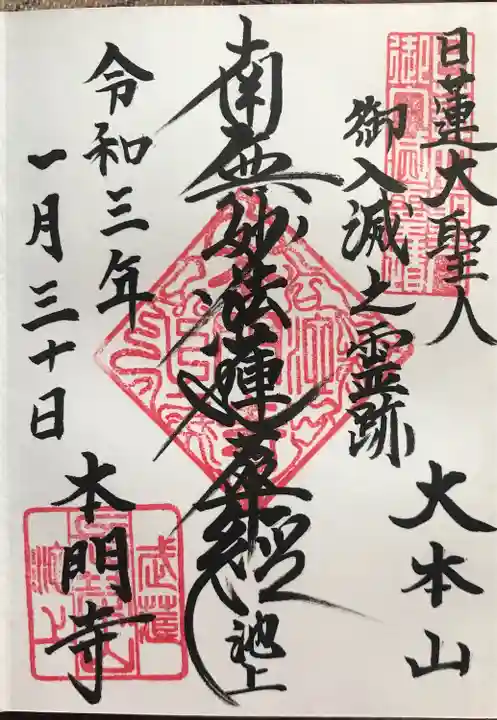 日蓮大聖人
御入滅之霊跡
大本山
南無妙法蓮華経
池上
本門寺
令和三年
一月三十日
武蔵
池上